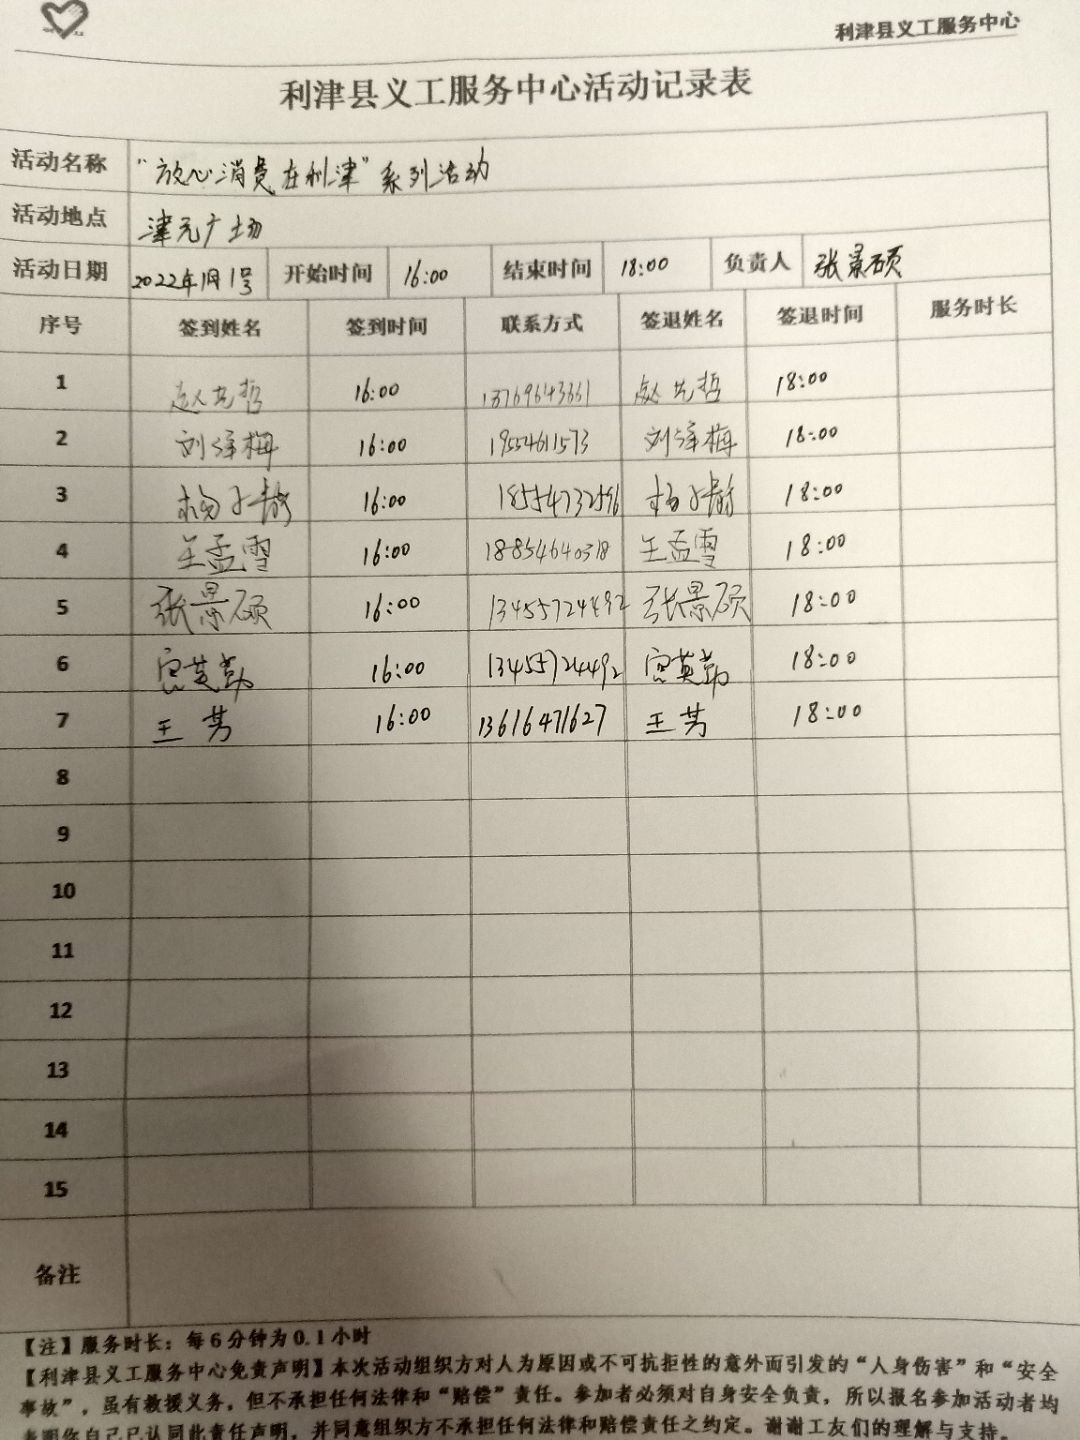 利津县义工服务中心
利津县义工服务中心活动记录表
活动名称 “放心消费在利津”系列活动
活动地点 津元广场
活动日期 2022年1月1号 开始时间 16:00 结束时间 18:00 负责人 张景硕
序号 签到姓名 签到时间 联系方式 签退姓名 签退时间 服务时长
1 赵先哲 16:00 13769643661 赵先哲 18:00
2 刘泽梅 16:00 19554611573 刘泽梅 18:00
3 杨小静 16:00 18554732596 杨小静 18:00
4 王孟雪 16:00 18854640318 王孟雪 18:00
5 张景硕 16:00 13455724492 张景硕 18:00
6 宫英勤 16:00 13455724492 宫英勤 18:00
7 王芳 16:00 13616471627 王芳 18:00
8
9
10
11
12
13
14
15
备注
【注】服务时长：每6分钟为0.1小时
【利津县义工服务中心免责声明】本次活动组织方对人为原因或不可抗拒性的意外而引发的“人身伤害”和“安全
事故”，虽有救援义务，但不承担任何法律和“赔偿”责任。参加者必须对自身安全负责，所以报名参加活动者均
表明你自己已认同此责任声明，并同意组织方不承担任何法律和赔偿责任之约定。谢谢工友们的理解与支持。